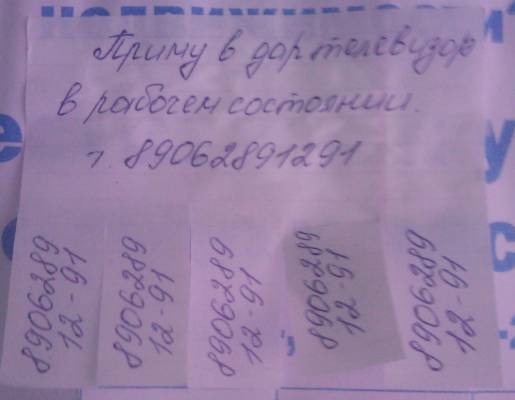 недвижимости
Приму в дар телевизор
в рабочем состоянии.
т. 89062891291
8906289
12-91
8906289
12-91
8906289
12-91
8906289
12-91
8906289
12-91